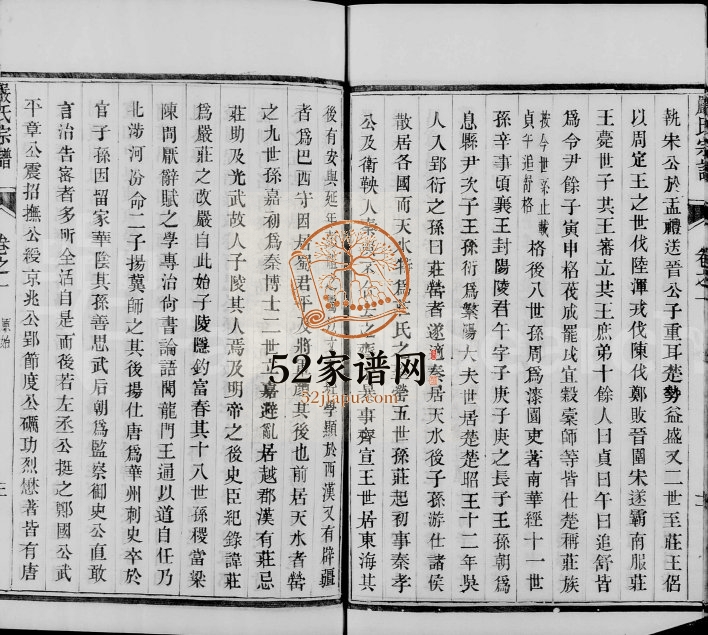 嚴氏宗譜
卷之一
執宋公於盂禮送晉公子重耳楚勢益盛又二世至莊王侶
以周定王之世伐陸渾戎伐陳伐鄭敗晉圍宋遂霸南服莊
王薨世子共王審立共王庶弟十餘人曰貞曰午曰追舒皆
為令尹餘子寅申格茷成罷戌宜穀橐師等皆仕楚稱莊族
按今世系止載
貞午追舒格
格後八世孫周為漆園吏著南華經十一世
孫辛事頃襄王封陽陵君午字子庚子庚之長子王孫朝為
息縣尹次子王孫衍為繁陽大夫世居楚楚昭王十二年吳
人入郢衍之孫曰莊嚳者遂適秦居天水後子孫游仕諸侯
散居各國而天水特為莊氏之 嚳五世孫莊起初事秦孝
公及衛鞅人秦 事齊宣王世居東海其
後有安與延年 學顯於西漢又有辟疆
者為巴西守因居蜀君平及將 其後也前居天水者嚳
之九世孫嘉初為秦博士二世立嘉避亂居越郡漢有莊忌
莊助及光武故人子陵其人焉及明帝之後史臣紀錄諱莊
為嚴莊之改嚴自此始子陵隱釣富春其十八世孫稷當梁
陳間厭辭賦之學專治尚書論語聞龍門王通以道自任乃
北涉河汾命二子揚冀師之其後揚仕唐為華州刺史卒於
官子孫因留家華陰其孫善思武后朝為監察御史公直敢
言治告密者多所全活自是而後若左丞公挺之鄭國公武
平章公震招撫公綬京兆公郢節度公礪功烈懋著皆有唐
嚴氏宗譜
卷之一
原始
三
52家谱网
52jiapu.com